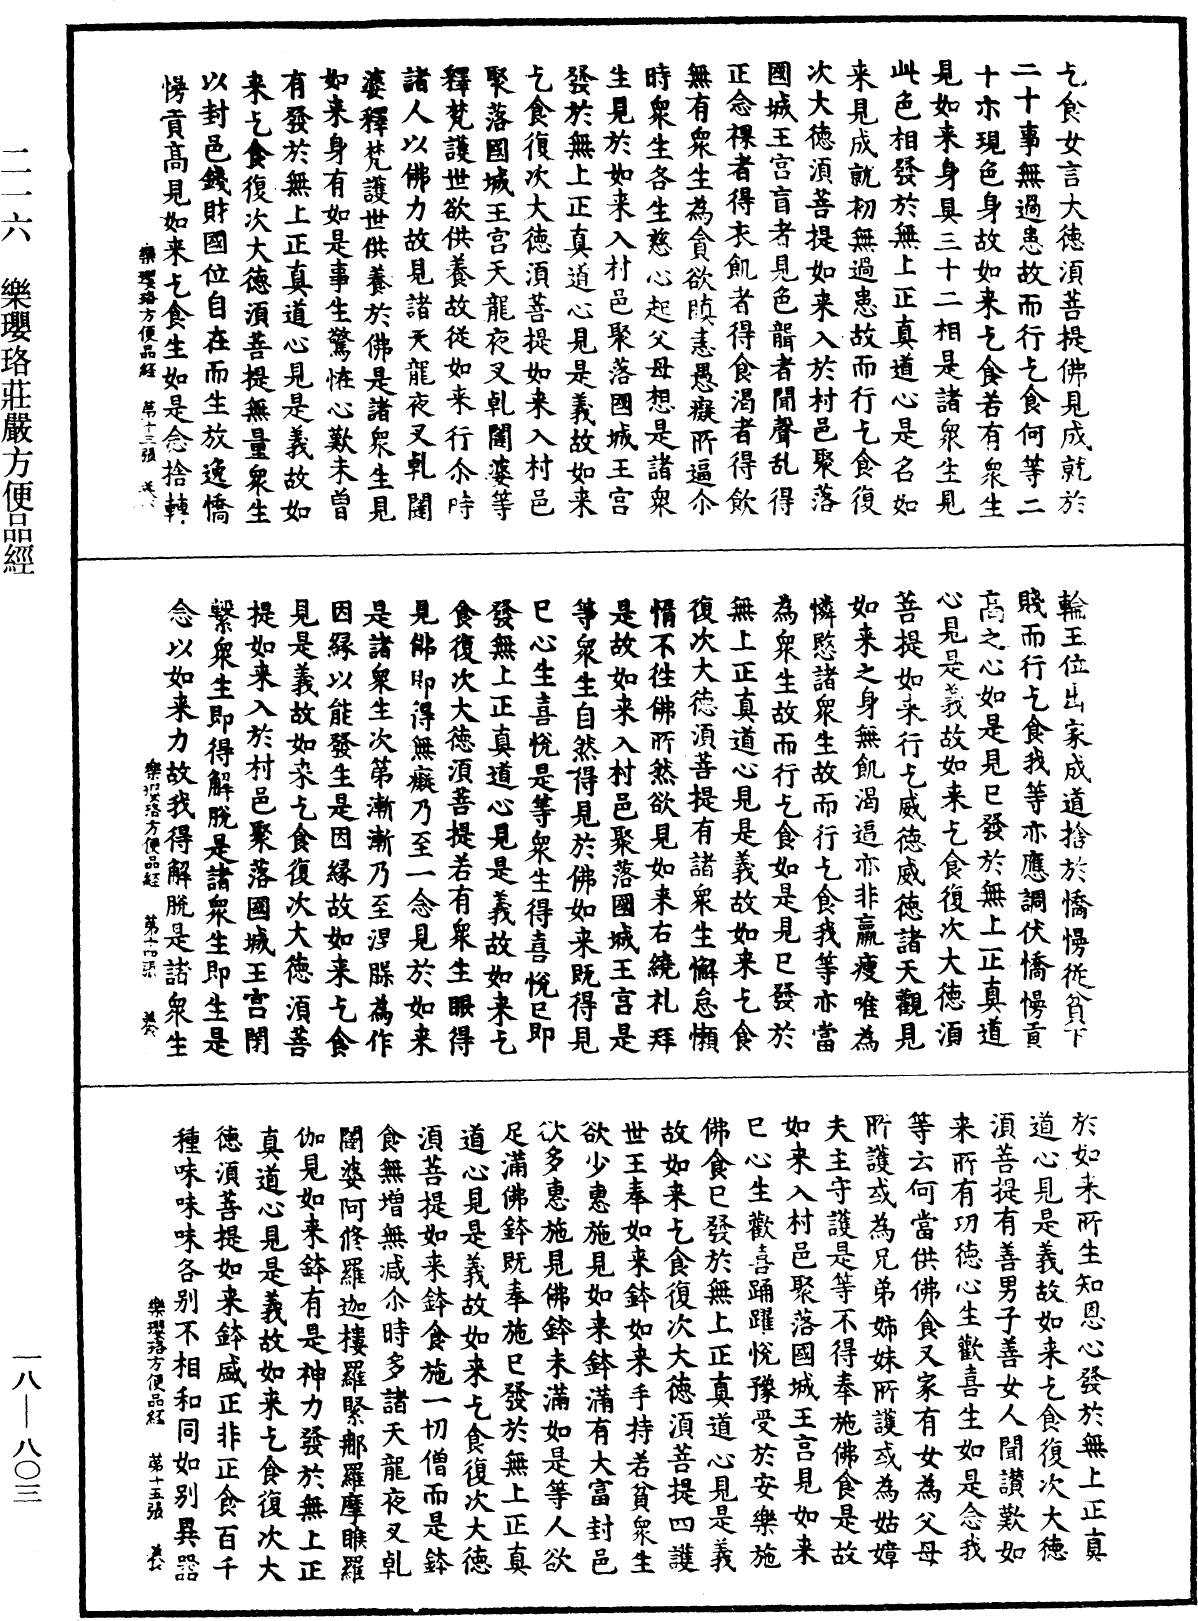 二一六　樂瓔珞莊嚴方便品經
乞食女言大德湏菩提佛見成就於
二十事無過患故而行乞食何等二
十尒現色身故如来乞食若有衆生
見如来身具三十二相是諸衆生見
此色相發於無上正真道心是名如
来見成就初無過患故而行乞食復
次大德湏菩提如来入於村邑聚落
國城王宫盲者見色聾者聞聲乱得
正念裸者得衣飢者得食渴者得飲
無有衆生為貪欲瞋恚愚癡所逼尒
時衆生各生慈心起父母想是諸衆
生見於如来入村邑聚落國城王宫
發於無上正真道心見是義故如来
乞食復次大德湏菩提如来入村邑
聚落國城王宫天龍夜叉乹闥婆等
釋梵護世欲供養故從如来行尒時
諸人以佛力故見諸天龍夜叉乹闥
婆釋梵護世供養於佛是諸衆生見
如来身有如是事生驚恠心歎未曾
有發於無上正真道心見是義故如
来乞食復次大德湏菩提無量衆生
以封邑錢財國位自在而生放逸憍
慢貢高見如来乞食生如是念捨轉
樂瓔珞方便品經　第十三張
輪王位出家成道捨於憍慢從貧下
賤而行乞食我等亦應調伏憍慢貢
高之心如是見已發於無上正真道
心見是義故如来乞食復次大德湏
菩提如来行乞威德威德諸天觀見
如来之身無飢渴逼亦非羸瘦唯為
憐愍諸衆生故而行乞食我等亦當
為衆生故而行乞食如是見已發於
無上正真道心見是義故如来乞食
復次大德湏菩提有諸衆生懈怠懶
惰不徃佛所然欲見如来右繞礼拜
是故如来入村邑聚落國城王宫是
等衆生自然得見於佛如来既得見
已心生喜悅是等衆生得喜悅已即
發無上正真道心見是義故如来乞
食復次大德湏菩提若有衆生眼得
見佛即得無癡乃至一念見於如来
是諸衆生次第漸漸乃至涅槃為作
因緣以能發生是因緣故如来乞食
見是義故如来乞食復次大德湏菩
提如来入於村邑聚落國城王宫閉
繫衆生即得解脫是諸衆生即生是
念以如来力故我得解脫是諸衆生
樂瓔珞方便品經　第十四張
於如来所生知恩心發於無上正真
道心見是義故如来乞食復次大德
湏菩提有善男子善女人聞讃歎如
来所有功德心生歡喜生如是念我
等云何當供佛食又家有女為父母
所護或為兄弟姊妹所護或為姑嫜
夫主守護是等不得奉施佛食是故
如来入村邑聚落國城王宫見如来
已心生歡喜踊躍悅豫受於安樂施
佛食已發於無上正真道心見是義
故如来乞食復次大德湏菩提四護
世王奉如来鉢如来手持若貧衆生
欲少惠施見如来鉢滿有大富封邑
欲多惠施見佛鉢未滿如是等人欲
足滿佛鉢既奉施已發於無上正真
道心見是義故如来乞食復次大德
湏菩提如来鉢食施一切僧而是鉢
食無增無減尒時多諸天龍夜叉乹
闥婆阿脩羅迦樓羅緊那羅摩睺羅
伽見如来鉢有是神力發於無上正
真道心見是義故如来乞食復次大
德湏菩提如来鉢盛正非正食百千
種味味味各别不相和同如别異器
樂瓔珞方便品經　第十五張
一八—八〇三